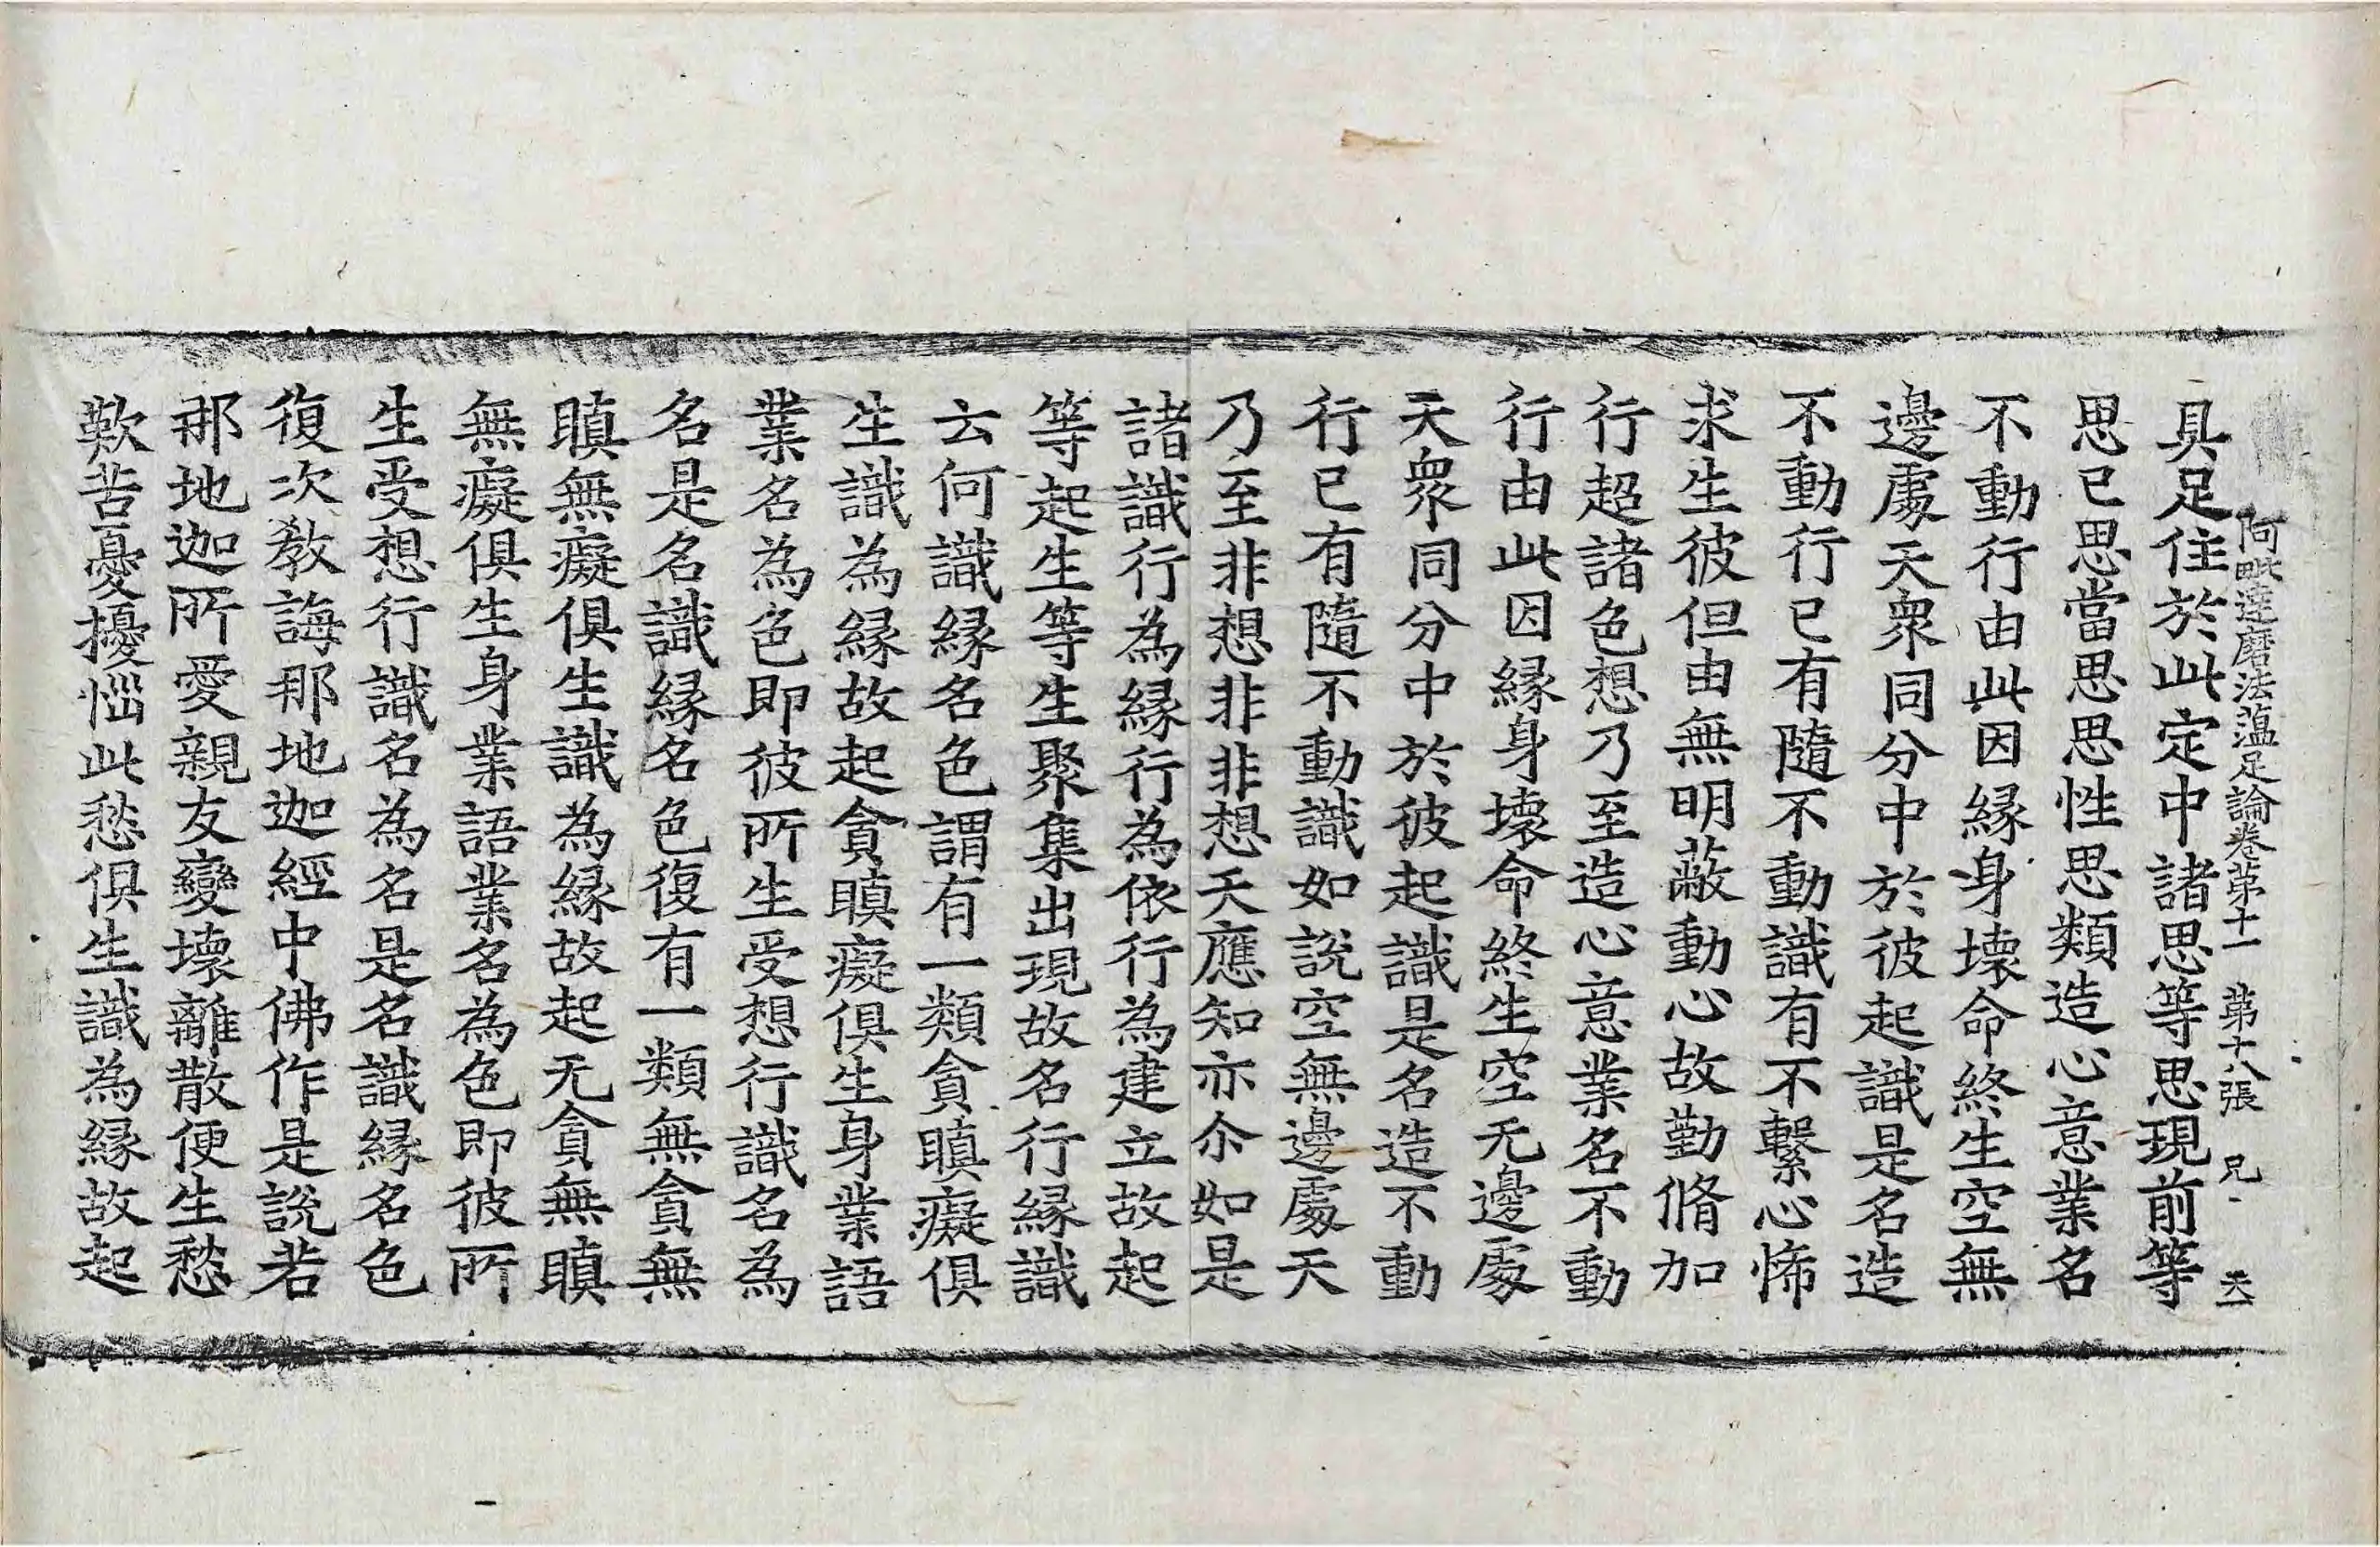 阿毗達磨法蕴足論卷苐十一 苐十八張 兄 天一
具足住於此定中諸思等思現前等
思已思當思思性思類造心意業名
不動行由此因縁身壞命終生空無
邊處天衆同分中於彼起識是名造
不動行已有隨不動識有不繫心悕
求生彼但由無明蔽動心故勤脩加
行超諸色想乃至造心意業名不動
行由此因縁身壞命終生空无邊處
天衆同分中於彼起識是名造不動
行已有隨不動識如說空無邊處天
乃至非想非非想天應知亦尒如是
諸識行為縁行為依行為建立故起
等起生等生聚集出現故名行縁識
云何識縁名色謂有一類貪瞋癡俱
生識為縁故起貪瞋癡俱生身業語
業名為色即彼所生受想行識名為
名是名識縁名色復有一類無貪無
瞋無癡俱生識為縁故起无貪無瞋
無癡俱生身業語業名為色即彼所
生受想行識名為名是名識縁名色
復次教誨那地迦經中佛作是說若
那地迦所愛親友變壞離散便生愁
歎苦憂擾惱此愁俱生識為縁故起